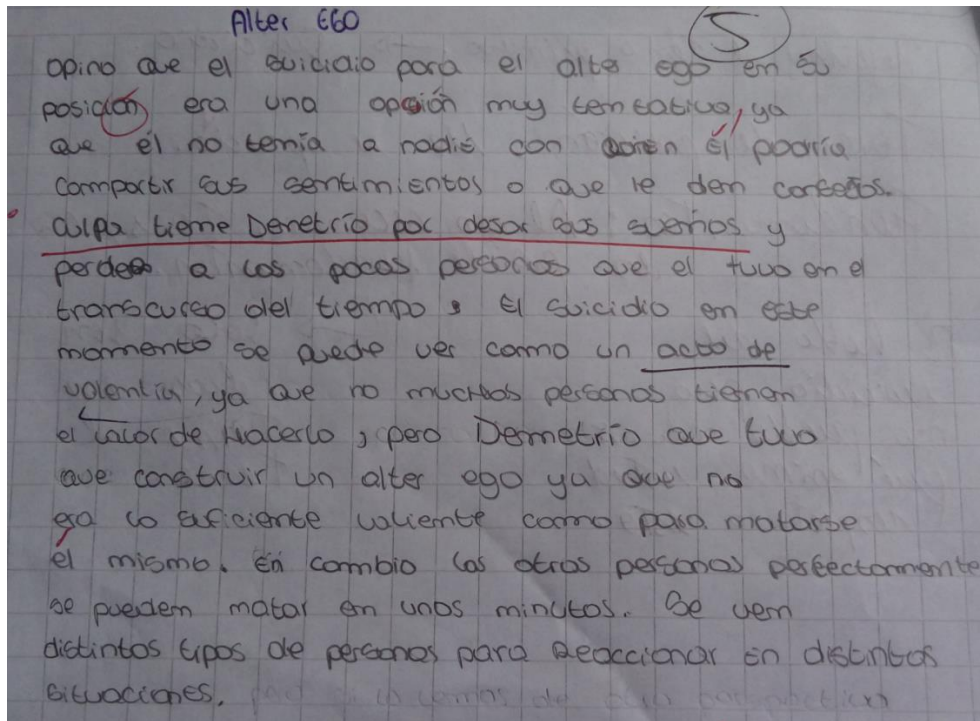 Alter EGO
5
opino que el suicidio para el alter ego en su
posición era una opción muy tentativa, ya
que él no temía a nadie con quien Él podría
compartir sus sentimientos o que le den consejos.
culpa tiene Demetrío por desar sus sueños y
perder a las pocas personas que el tuvo en el
transcurso del tiempo, El suicidio en este
momento se puede ver como un acto de
valentía, ya que no muchas personas tienen
el valor de Hacerlo, pero Demetrío que tuvo
que construir un alter ego ya que no
era lo suficiente valiente como para matarse
él mismo. En cambio las otras personas perfectamente
se pueden matar en unos minutos. Se ven
distintos tipos de personas para Reaccionar en distintas
situaciones.